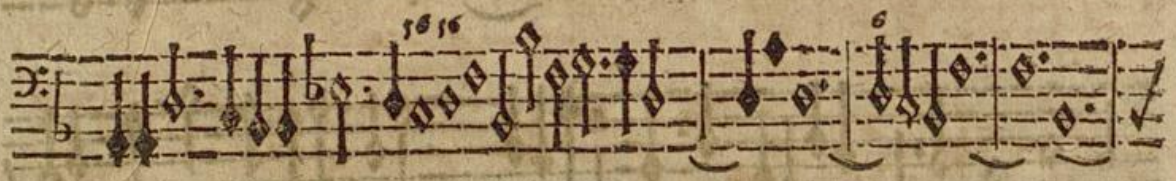 56 56 6